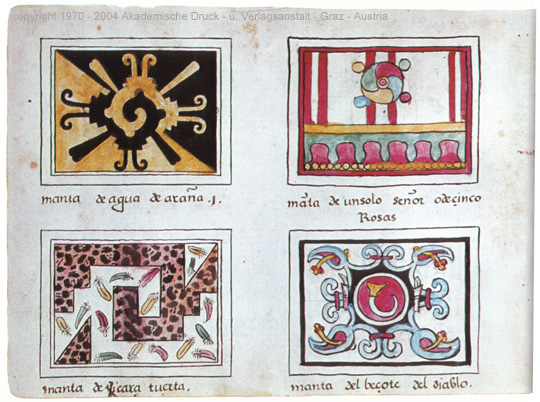 copyright 1970 - 2004 Akademische Druck - u. Verlagsanstalt - Graz - Austria
manta de agua de araña .1.
māta de unsolo señor odeçinco
Rosas
manta de xicara tuerta.
manta del beçote del diablo.